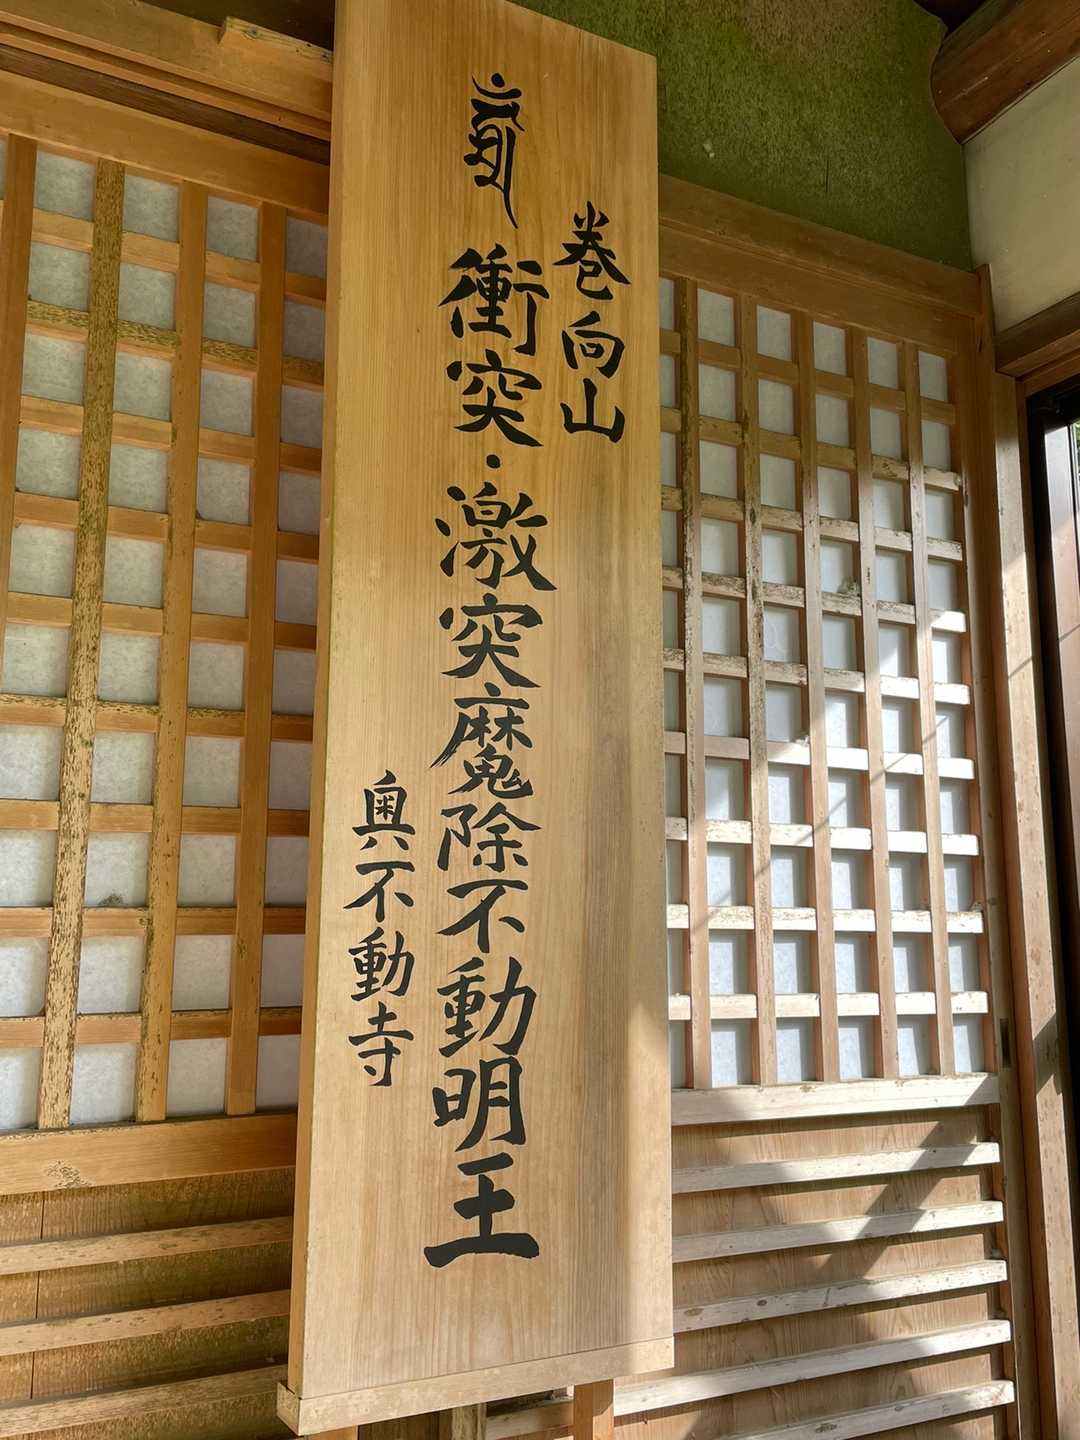 巻向山
衝突・激突魔除不動明王
奥不動寺